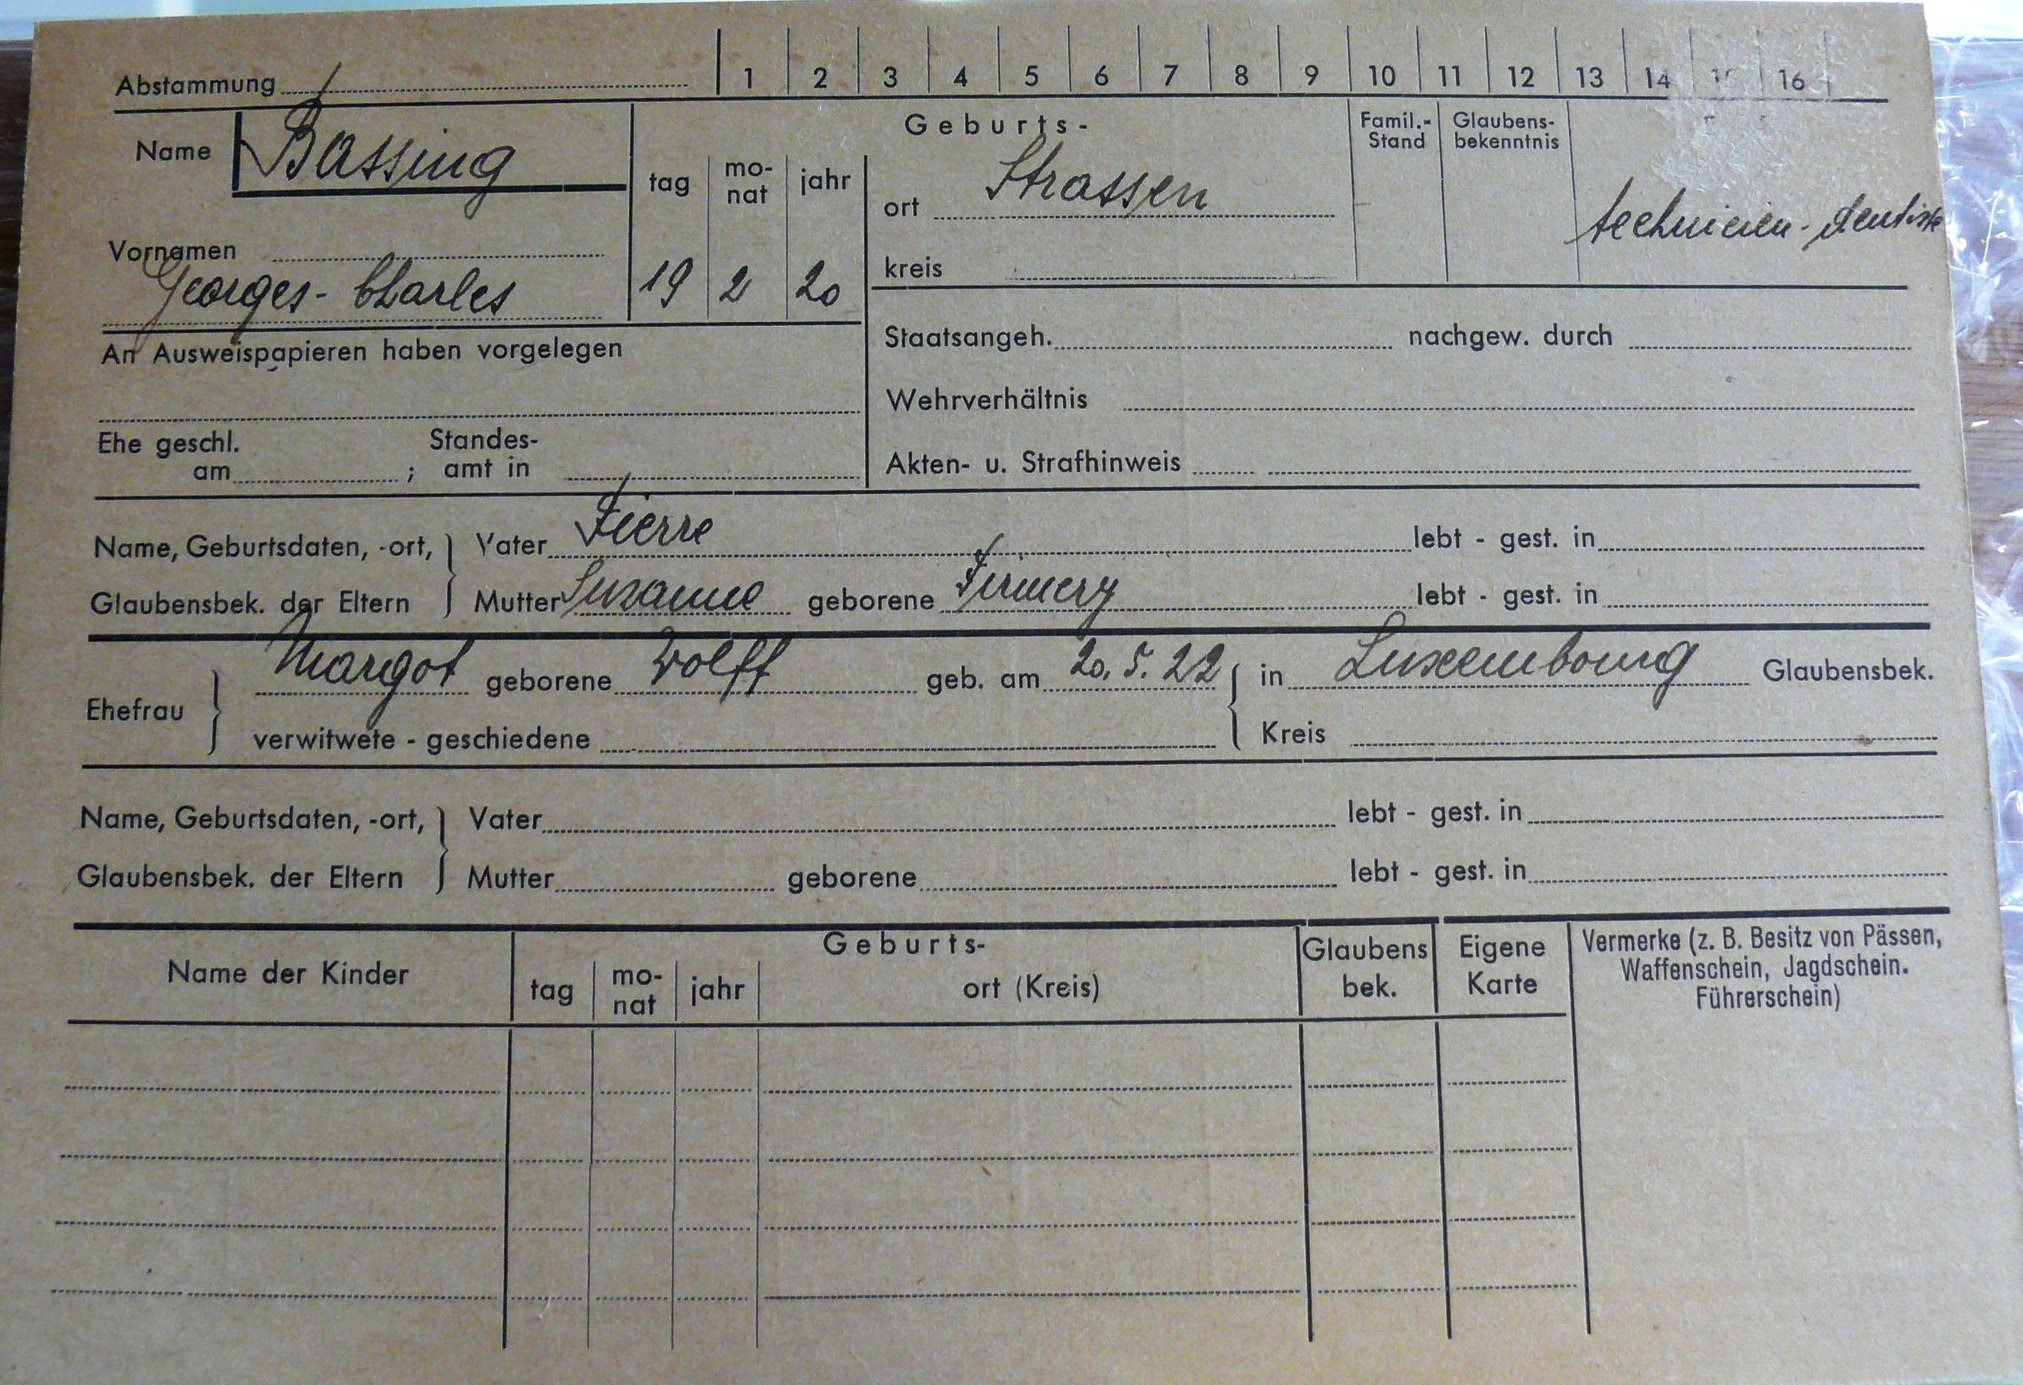 Abstammung 1 2 3 4 5 6 7 8 9 10 11 12 13 14 15 16
Name Bassing
Vornamen
Georges-Charles
Geburts-
tag mo-nat jahr
19 2 20
ort Strassen
kreis
Famil.-Stand
Glaubens-bekenntnis
technicien-dentiste
An Ausweispapieren haben vorgelegen
Ehe geschl. am ; Standes-amt in
Staatsangeh. nachgew. durch
Wehrverhältnis
Akten- u. Strafhinweis
Name, Geburtsdaten, -ort, Vater Pierre lebt - gest. in
Glaubensbek. der Eltern Mutter Suzanne geborene Firmery lebt - gest. in
Ehefrau Margot geborene Wolff geb. am 20. 5. 22 in Luxembourg Glaubensbek.
verwitwete - geschiedene Kreis
Name, Geburtsdaten, -ort, Vater lebt - gest. in
Glaubensbek. der Eltern Mutter geborene lebt - gest. in
Name der Kinder
Geburts-
tag mo-nat jahr ort (Kreis)
Glaubens bek.
Eigene Karte
Vermerke (z. B. Besitz von Pässen,
Waffenschein, Jagdschein.
Führerschein)